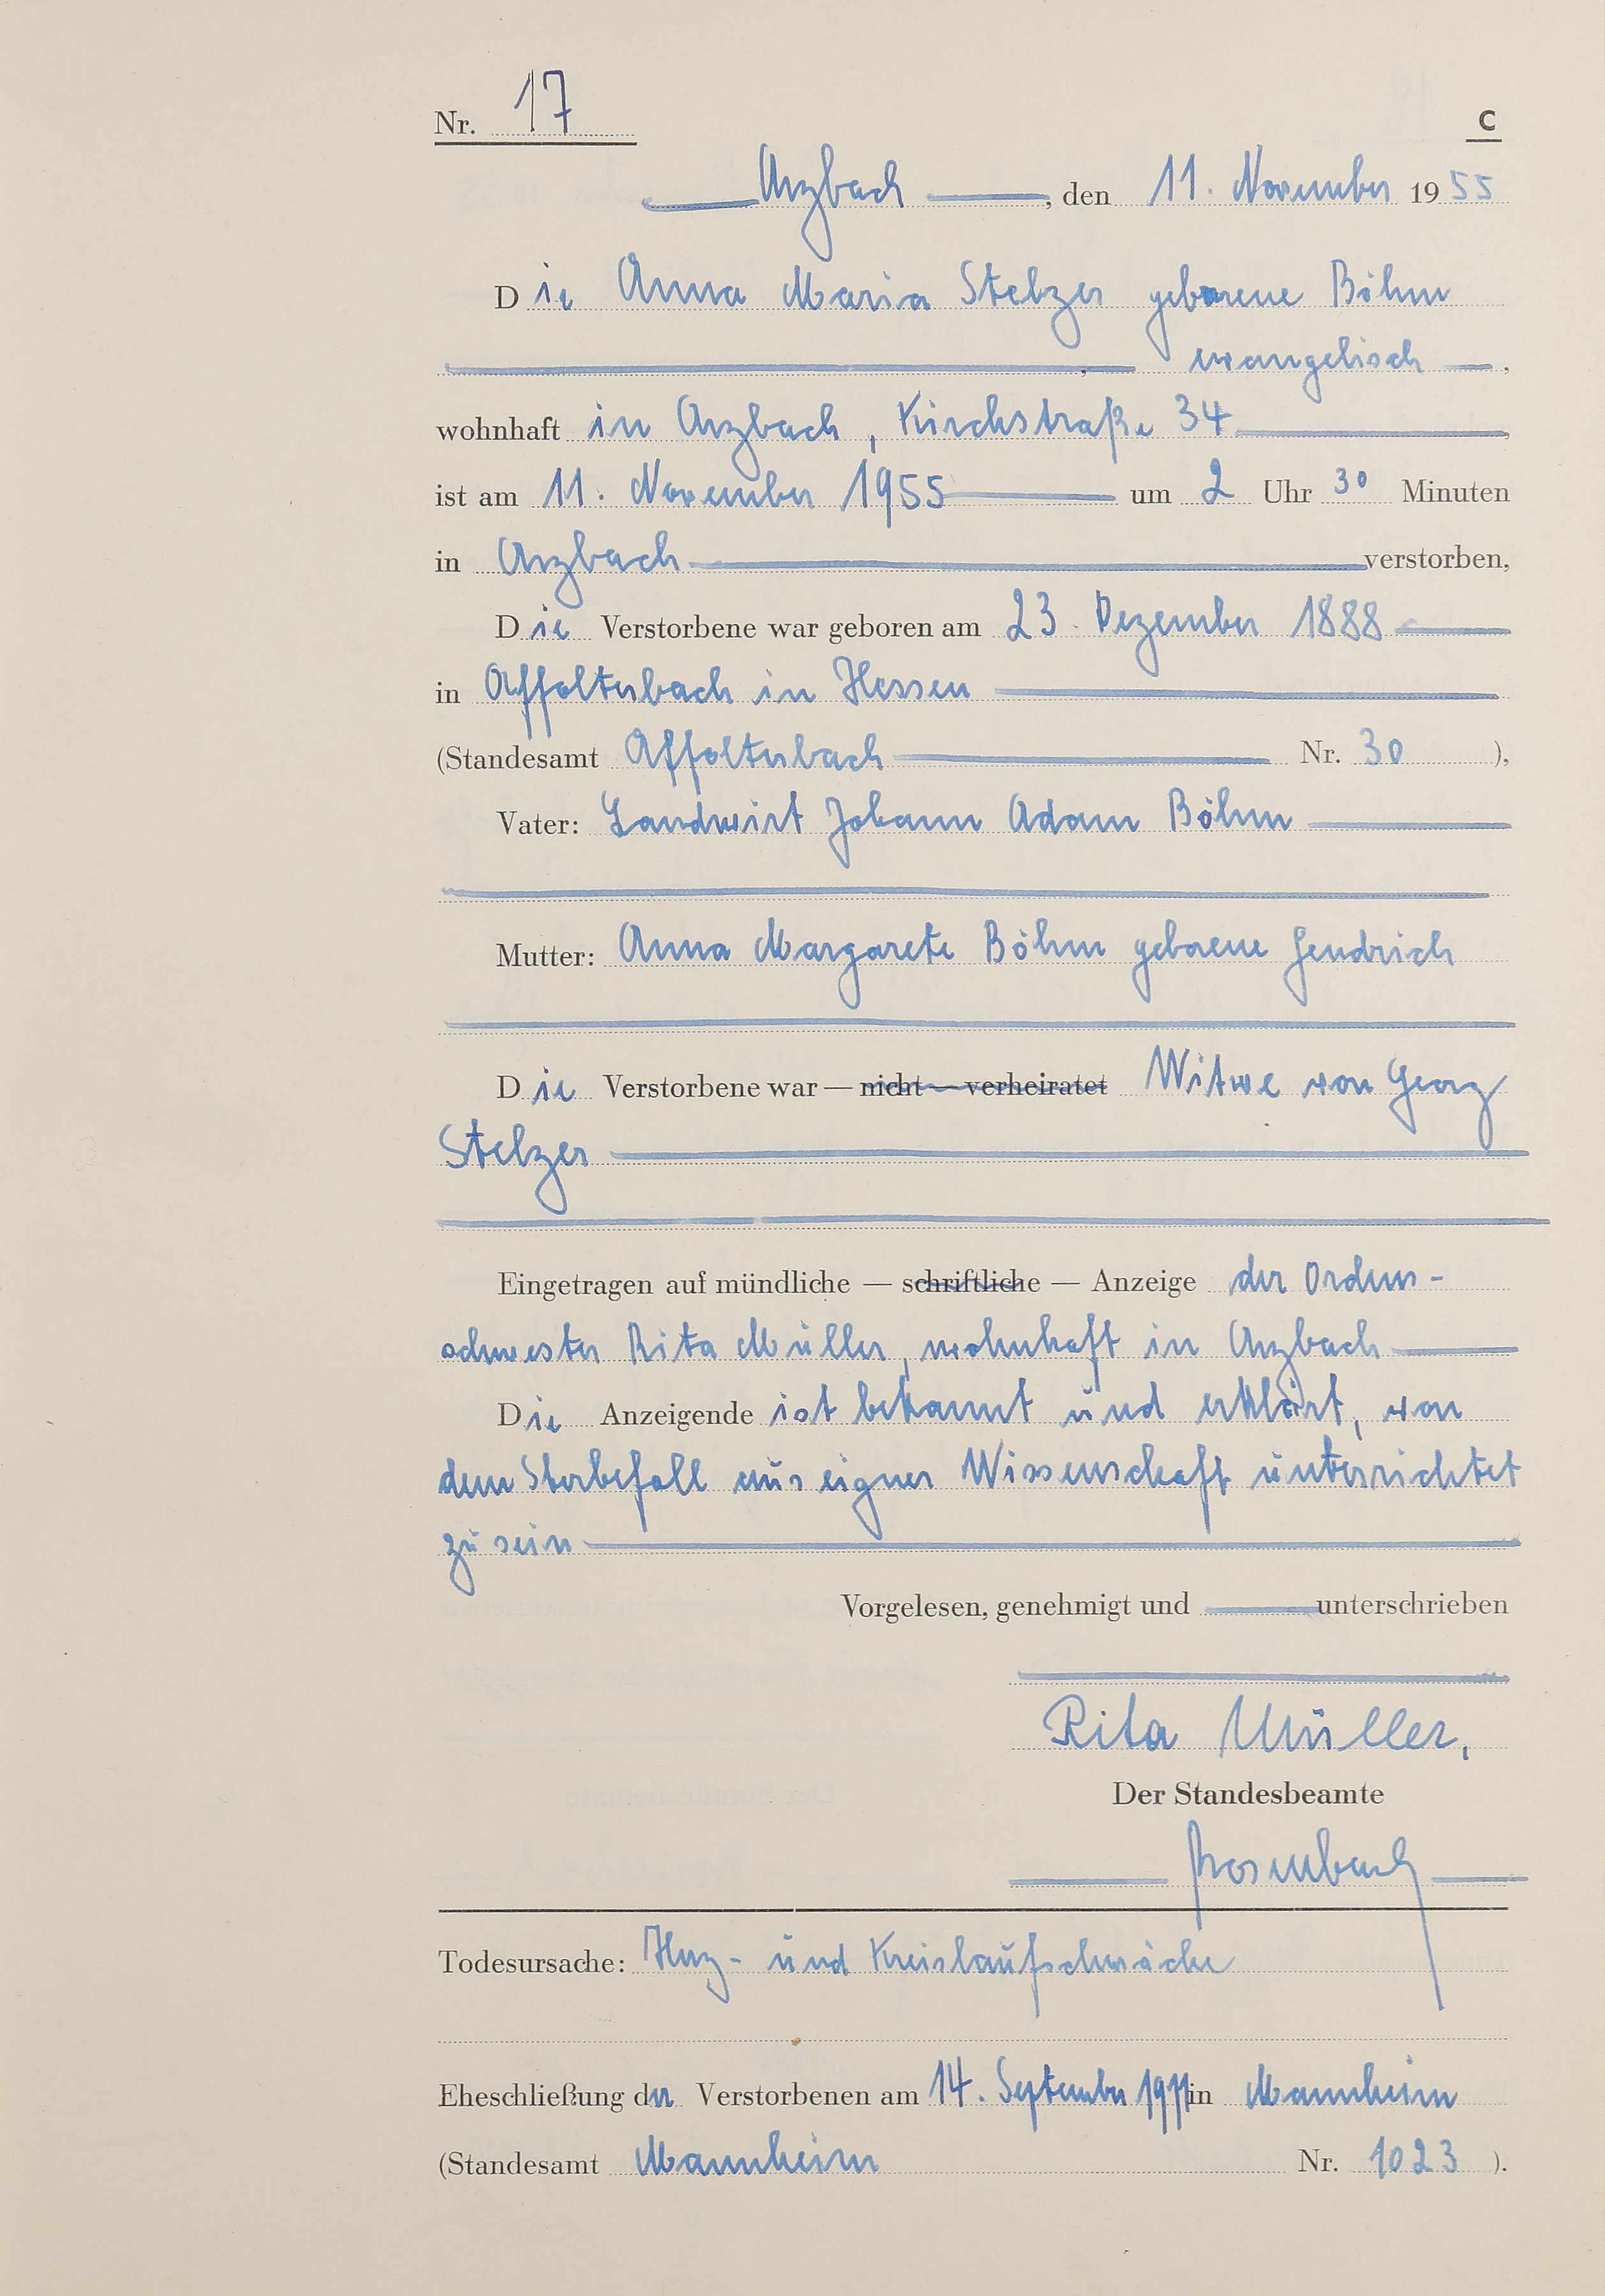 Nr. 17
C
Arzbach, den 11. November 1955
Die Anna Maria Stelzer geborene Böhm
, evangelisch,
wohnhaft in Arzbach, Kirchstraße 34,
ist am 11. November 1955 um 2 Uhr 30 Minuten
in Arzbach verstorben,
Die Verstorbene war geboren am 23. Dezember 1888
in Affolterbach in Hessen
(Standesamt Affolterbach Nr. 30),
Vater: Landwirt Johann Adam Böhm
Mutter: Anna Margarete Böhm geborene Hendrich
Die Verstorbene war — nicht — verheiratet Witwe von Georg
Stelzer
Eingetragen auf mündliche — schriftliche — Anzeige der Ordens-
schwester Rita Müller, wohnhaft in Arzbach
Die Anzeigende ist bekannt und erklärt, von
dem Sterbefall aus eigner Wissenschaft unterrichtet
zu sein
Vorgelesen, genehmigt und unterschrieben
Rita Müller,
Der Standesbeamte
Todesursache: Herz- und Kreislaufschwäche
Eheschließung der Verstorbenen am 14. September 1911 in Mannheim
(Standesamt Mannheim Nr. 1023).